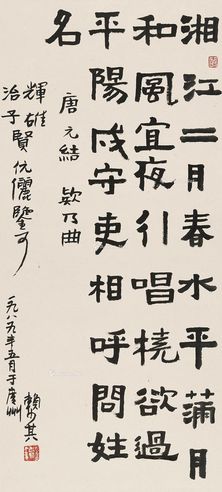 湘江二月春水平滿月
和風宜夜行唱橈欲過
平陽戍守吏相呼問姓
名
唐元結 欸乃曲
輝雄治子賢伉儷鑒可
一九八九年五月于廣州 賴少其